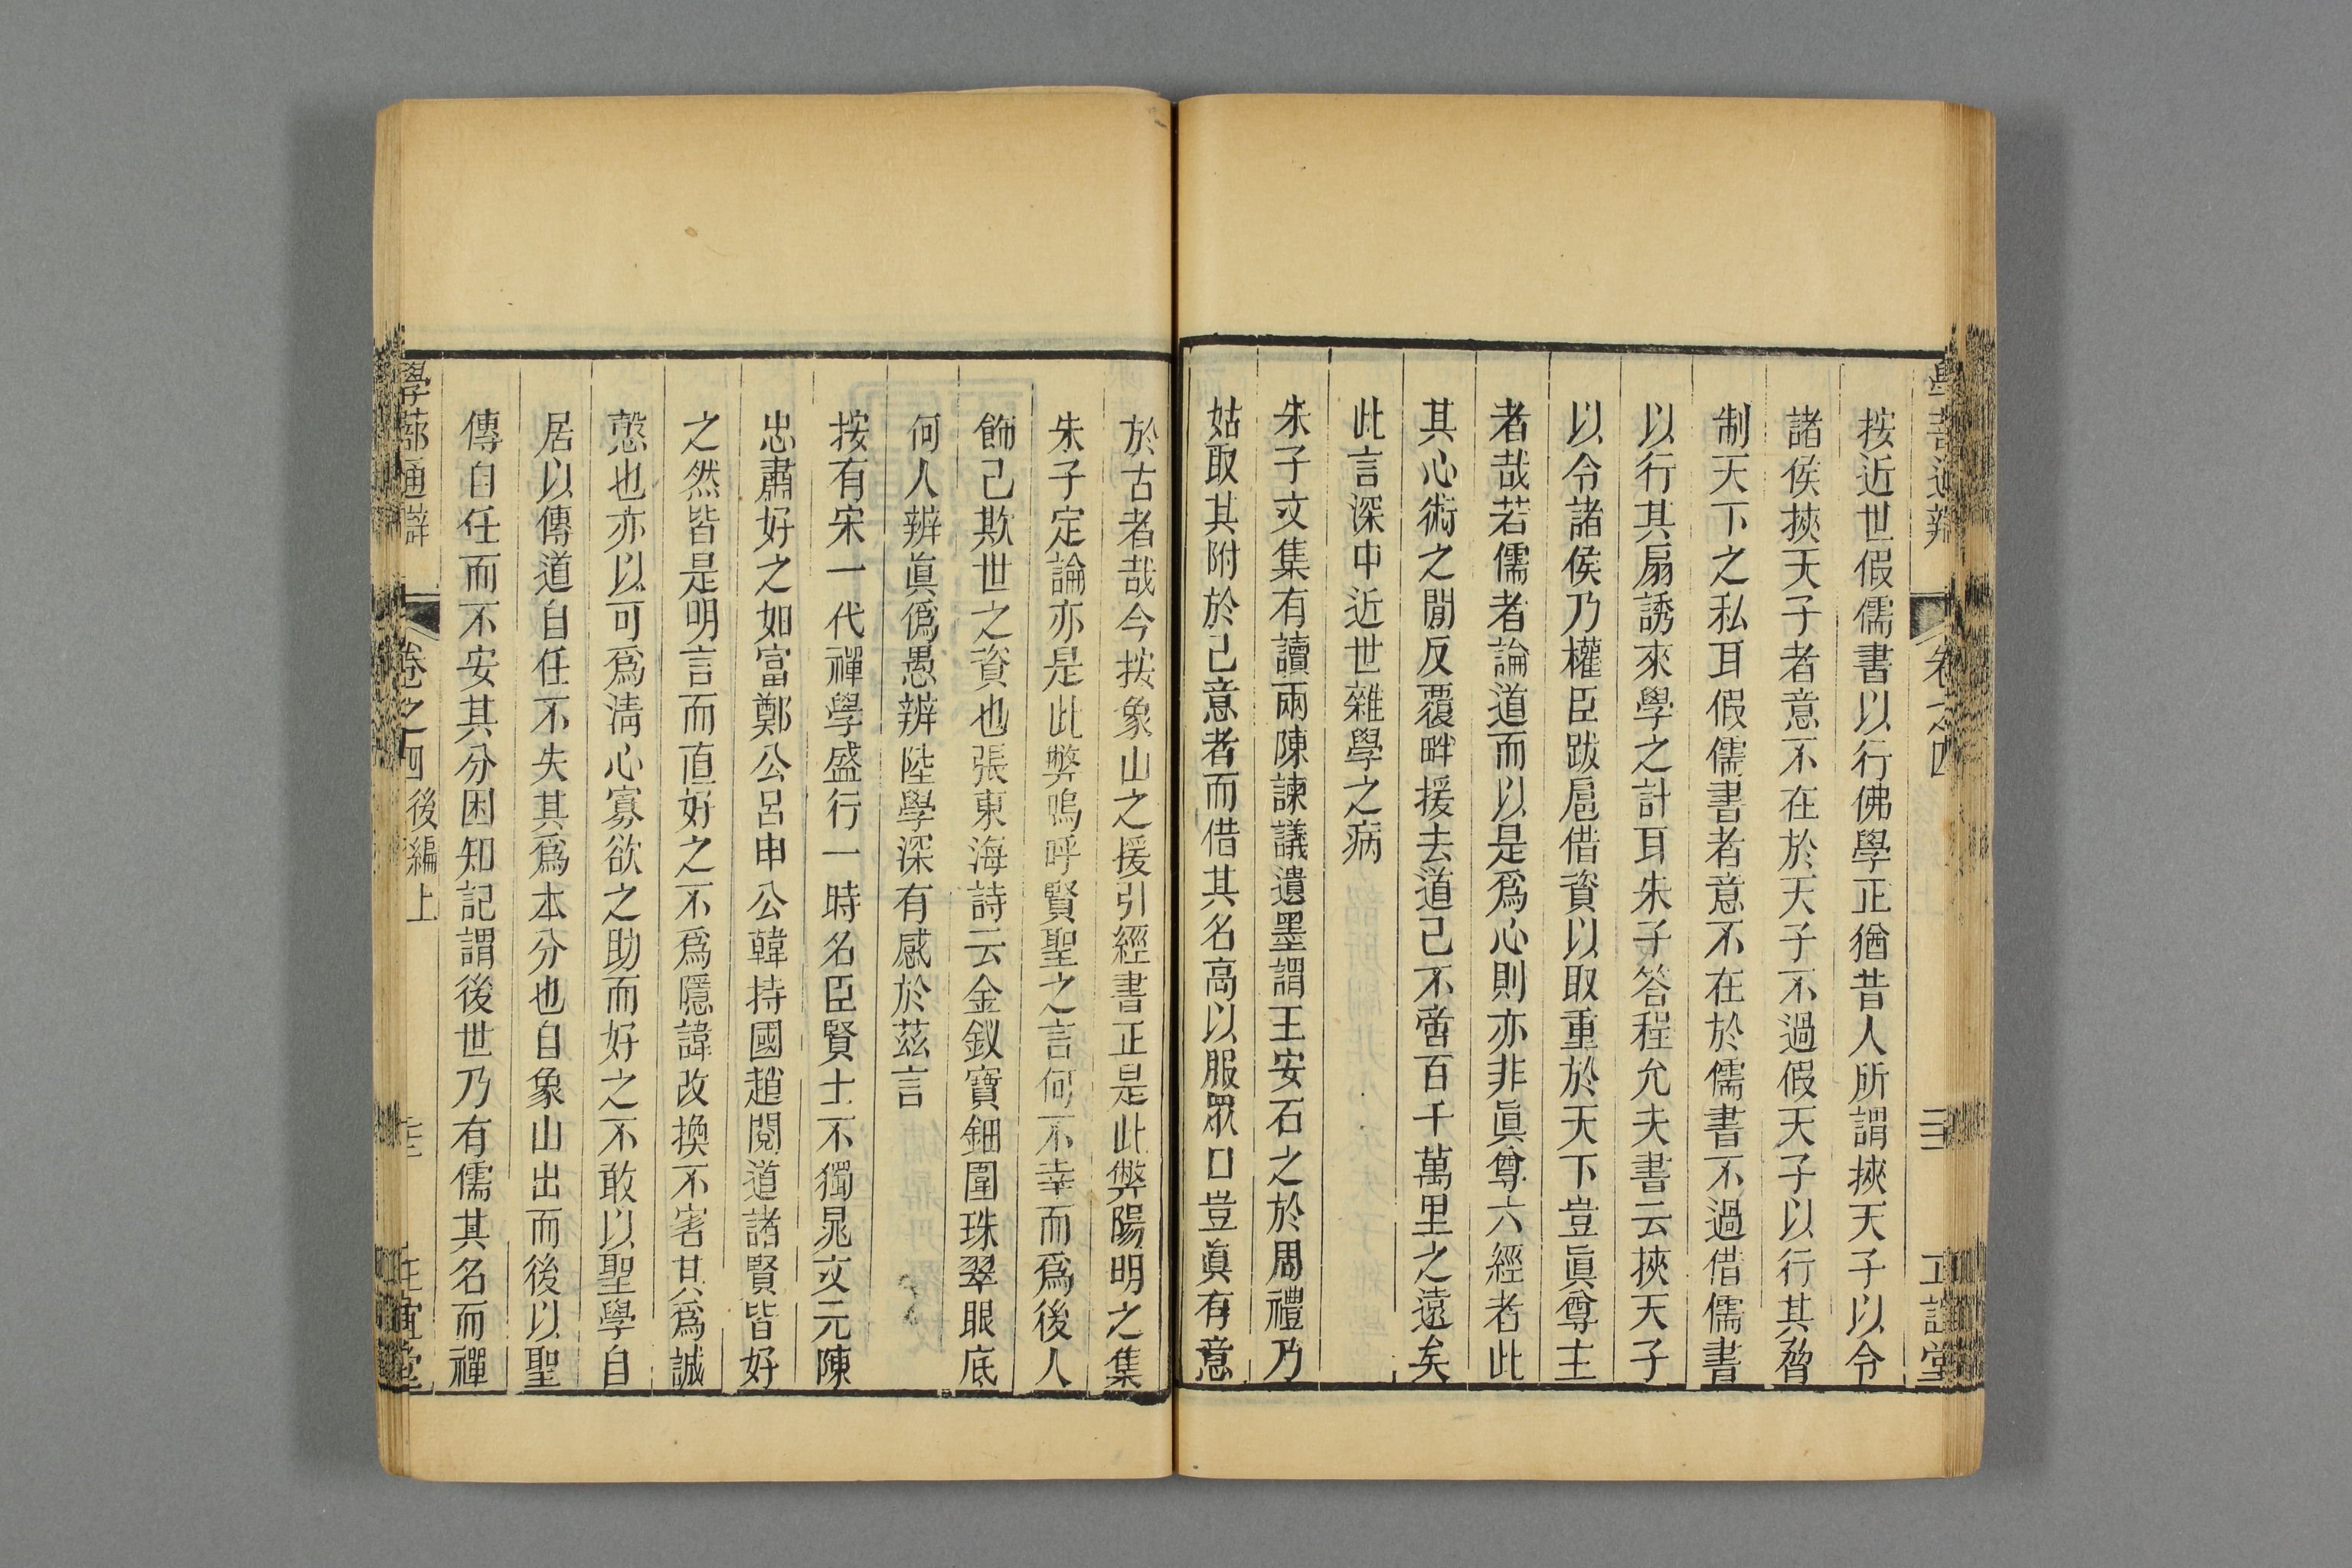 按近世假儒書以行佛學正猶昔人所謂挾天子以令
諸侯挾天子者意不在於天子不過假天子以行其脅
制天下之私耳假儒書者意不在於儒書不過借儒書
以行其扇誘來學之計耳朱子答程允夫書云挾天子
以令諸侯乃權臣跋扈借資以取重於天下豈眞尊主
者哉若儒者論道而以是爲心則亦非眞尊六經者此
其心術之閒反覆畔援去道已不啻百千萬里之遠矣
此言深中近世雜學之病
朱子文集有讀兩陳諫議遺墨謂王安石之於周禮乃
姑取其附於己意者而借其名高以服眾口豈眞有意
於古者哉今按象山之援引經書正是此弊陽明之集
朱子定論亦是此弊嗚呼賢聖之言何不幸而爲後人
飾己欺世之資也張東海詩云金釵寶鈿圍珠翠眼底
何人辨眞僞愚辨陸學深有感於茲言
按有宋一代禪學盛行一時名臣賢士不獨晁文元陳
忠肅好之如富鄭公呂申公韓持國趙閱道諸賢皆好
之然皆是明言而直好之不爲隱諱改換不害其爲誠
慤也亦以可爲淸心寡欲之助而好之不敢以聖學自
居以傳道自任不失其爲本分也自象山出而後以聖
傳自任而不安其分困知記謂後世乃有儒其名而禪
學蔀通辯
卷之四
後編上